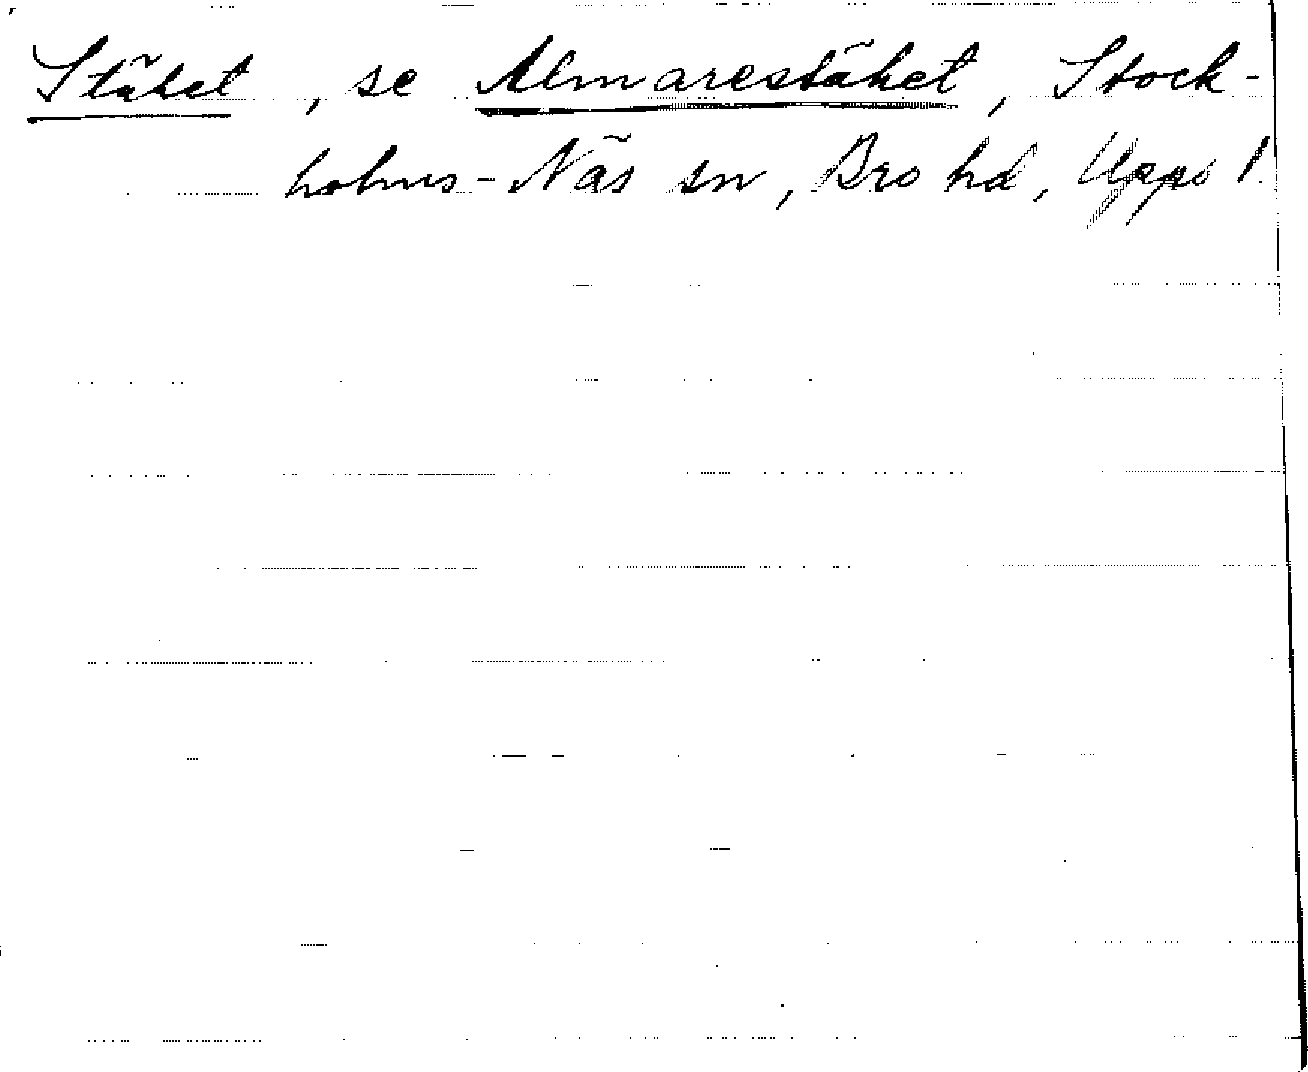 Stäket, se Almarestäket, Stock-
holms-Näs sn, Bro hd, Upps l.